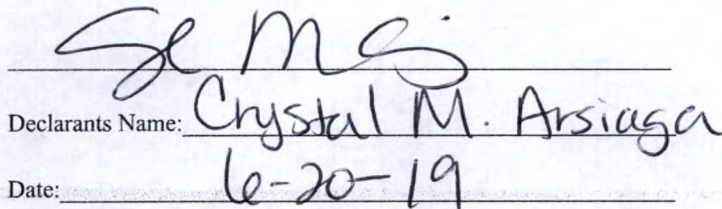 Declarants Name: Crystal M. Arsiaga
Date: 6-20-19